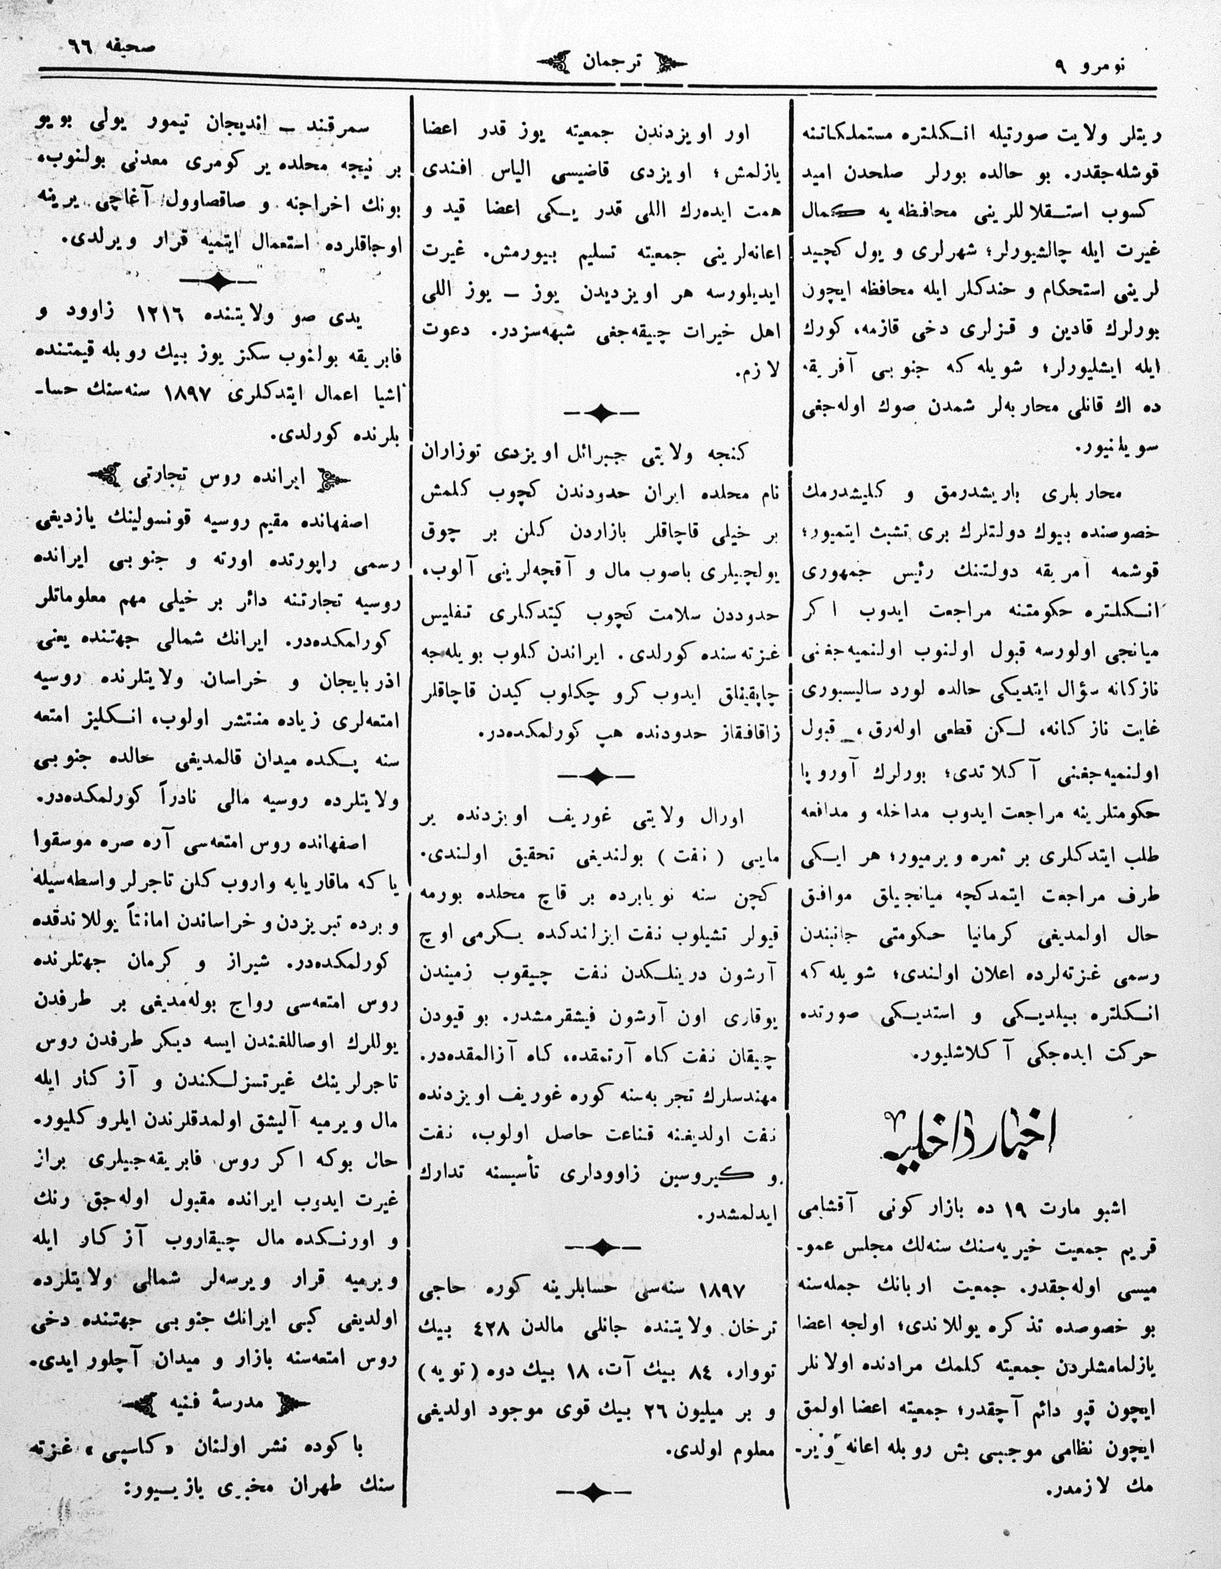 نومرو ٩
ترجمان
صحیفه ٦٦
ریتلر ولایت صورتیله انكلتره مستملكاتنه
قوشله‌جقدر. بو حالده بورلر صلحدن امید
كسوب استقلاللرینی محافظه یه كمال
غیرت ایله چالشیورلر؛ شهرلری و یول كچید
لرینی استحكام و خندكلر ایله محافظه ایچون
بورلرك قادین و قزلری دخی قازمه، كورك
ایله ایشلیورلر؛ شویله كه جنوبی آفریقه
ده اك قانلی محاربه‌لر شمدن صوك اوله‌جغی
سویلنیور.
محاربلری باریشدرمق و كلیشدرمك
خصوصنده بیوك دولتلرك بری تشبث ایتمیور؛
قوشمه امریقه دولتنك رئیس جمهوری
انكلتره حكومتنه مراجعت ایدوب اكر
میانجی اولورسه قبول اولنوب اولنمیه‌جغنی
نازكانه سؤال ایتدیكی حالده لورد سالیسبوری
غایت نازكانه، لكن قطعی اوله‌رق، قبول
اولنمیه‌جغنی آكلاتدی؛ بورلرك آوروپا
حكومتلرینه مراجعت ایدوب مداخله و مدافعه
طلب ایتدكلری بر ثمره ویرمیور؛ هر ایكی
طرف مراجعت ایتمدكچه میانجیلق موافق
حال اولمدیغی كرمانیا حكومتی جانبندن
رسمی غزته‌لرده اعلان اولندی؛ شویله كه
انكلتره بیلدیكی و استدیكی صورتده
حركت ایده‌جكی آكلاشلیور.
اخبار داخلیه
اشبو مارت ١٩ ده بازار كونی آقشامی
قریم جمعیت خیریه‌سنك سنه‌لك مجلس عمو-
میسی اوله‌جقدر. جمعیت اربانك جمله‌سنه
بو خصوصده تذكره یوللاندی؛ اولجه اعضا
یازلمامشلردن جمعیته كلمك مرادنده اولانلر
ایچون قپو دائم آچقدر؛ جمعیته اعضا اولمق
ایچون نظامی موجبی بش روبله اعانه ویر-
مك لازمدر.
اور اویزدندن جمعیته یوز قدر اعضا
یازلمش؛ اویزدی قاضیسی الیاس افندی
همت ایده‌رك اللی قدر یكی اعضا قید و
اعانه‌لرینی جمعیته تسلیم بیورمش. غیرت
ایدیلورسه هر اویزدیدن یوز – یوز اللی
اهل خیرات چیقه‌جغی شبهه‌سزدر. دعوت
لازم.
كنجه ولایتی جبرائل اویزدی توزاران
نام محلده ایران حدودندن كچوب كلمش
بر خیلی قاچاقلر بازاردن كلن بر چوق
یولچیلری باصوب مال و آقچه‌لرینی آلوب،
حدوددن سلامت كچوب كیتدكلری تفلیس
غزته‌سنده كورلدی. ایراندن كلوب بویله‌جه
چاپقینلق ایدوب كرو چكلوب كیدن قاچاقلر
زاقافقاز حدودنده هپ كورلمكده‌در.
اورال ولایتی غوریف اویزدنده یر
مایی (نفت) بولندیغی تحقیق اولندی.
كچن سنه نویابرده بر قاچ محلده بورمه
قیولر تشیلوب نفت ایزلندكده یكرمی اوچ
آرشون درینلكدن نفت چیقوب زمیندن
یوقاری اون آرشون فیشقرمشدر. بو قیودن
چیقان نفت كاه آرتمقده، كاه آزالمقده‌در.
مهندسلرك تجربه‌سنه كوره غوریف اویزدنده
نفت اولدیغنه قناعت حاصل اولوب، نفت
و كیروسین زاوودلری تأسیسنه تدارك
ایدلمشدر.
١٨٩٧ سنه‌سی حسابلرینه كوره حاجی
ترخان ولایتنده جانلی مالدن ٤٢٨ بیك
تووار، ٨٤ بیك آت، ١٨ بیك دوه (تویه)
و بر میلیون ٢٦ بیك قوی موجود اولدیغی
معلوم اولدی.
سمرقند – اندیجان تیمور یولی بویو
بر نیجه محلده یر كومری معدنی بولنوب،
بونك اخراجنه و صاقصاوول آغاچی یرینه
اوجاقلرده استعمال ایتمیه قرار ویرلدی.
یدی صو ولایتنده ١٢١٦ زاوود و
فابریقه بولنوب سكز یوز بیك روبله قیمتنده
اشیا اعمال ایتدكلری ١٨٩٧ سنه‌سنك حسا-
بلرنده كورلدی.
ایرانده روس تجارتی
اصفهانده مقیم روسیه قونسولینك یازدیغی
رسمی راپورتده اورته و جنوبی ایرانده
روسیه تجارتنه دائر بر خیلی مهم معلوماتلر
كورلمكده‌در. ایرانك شمالی جهتنده یعنی
اذربایجان و خراسان ولایتلرنده روسیه
امتعه‌لری زیاده منتشر اولوب، انكلیز امتعه
سنه یكده میدان قالمدیغی حالده جنوبی
ولایتلرده روسیه مالی نادراً كورلمكده‌در.
اصفهانده روس امتعه‌سی آره صره موسقوا
یاكه ماقاریایه واروب كلن تاجرلر واسطه‌سیله
وبرده تبریزدن و خراساندن امانتاً یوللاندقده
كورلمكده‌در. شیراز و كرمان جهتلرنده
روس امتعه‌سی رواج بوله‌مدیغی بر طرفدن
یوللرك اوصاللغندن ایسه دیكر طرفدن روس
تاجرلرینك غیرتسزلكندن و آز كار ایله
مال ویرمیه آلیشق اولمدقلرندن ایلرو كلیور.
حال بوكه اكر روس فابریقه‌جیلری براز
غیرت ایدوب ایرانده مقبول اوله‌جق رنك
و اورنكده مال چیقاروب آز كار ایله
ویرمیه قرار ویرسه‌لر شمالی ولایتلرده
اولدیغی كبی ایرانك جنوبی جهتنده دخی
روس امتعه‌سنه بازار و میدان آچلور ایدی.
مدرسهٔ فنیه
باكوده نشر اولنان «كاسپی» غزته
سنك طهران مخبری یازیسیور: